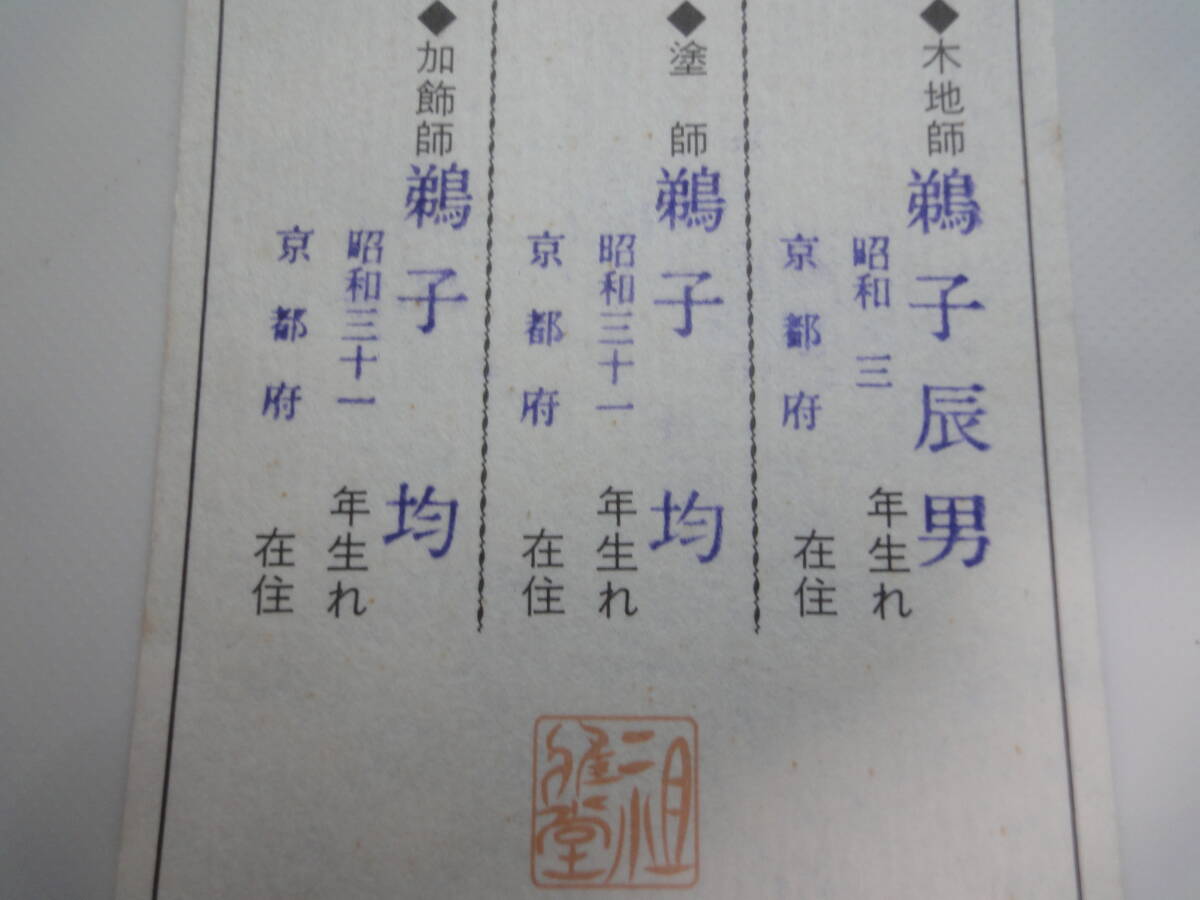 ◆木地師 鵜子辰男
昭和 三 年生れ
京都府 在住
◆塗 師 鵜子 均
昭和三十一 年生れ
京都府 在住
◆加飾師 鵜子 均
昭和三十一 年生れ
京都府 在住